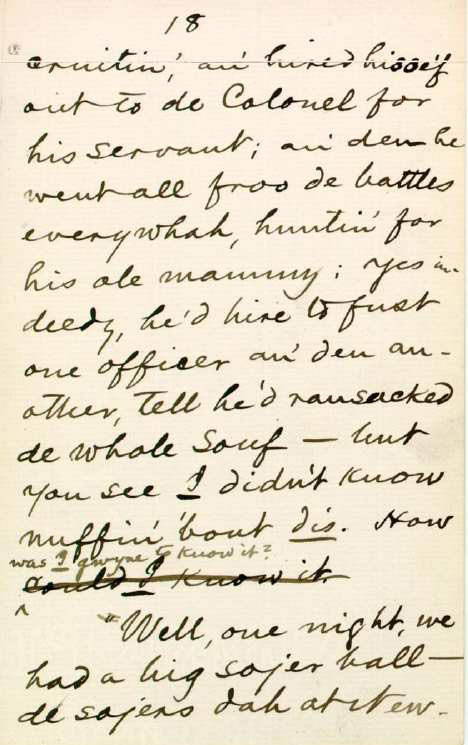 18
cruitin', an' hired hisse'f
out to de Colonel for
his servant; an' den he
went all froo de battles
everywhah, huntin' for
his ole mammy; yes in-
deedy, he'd hire to fust
one officer an' den an-
other, tell he'd ransacked
de whole Souf — but
you see I didn't know
nuffin' 'bout dis. How
was I gwyne to know it?
could I know it.
"Well, one night, we
had a big sojer ball —
de sojers dah at New-